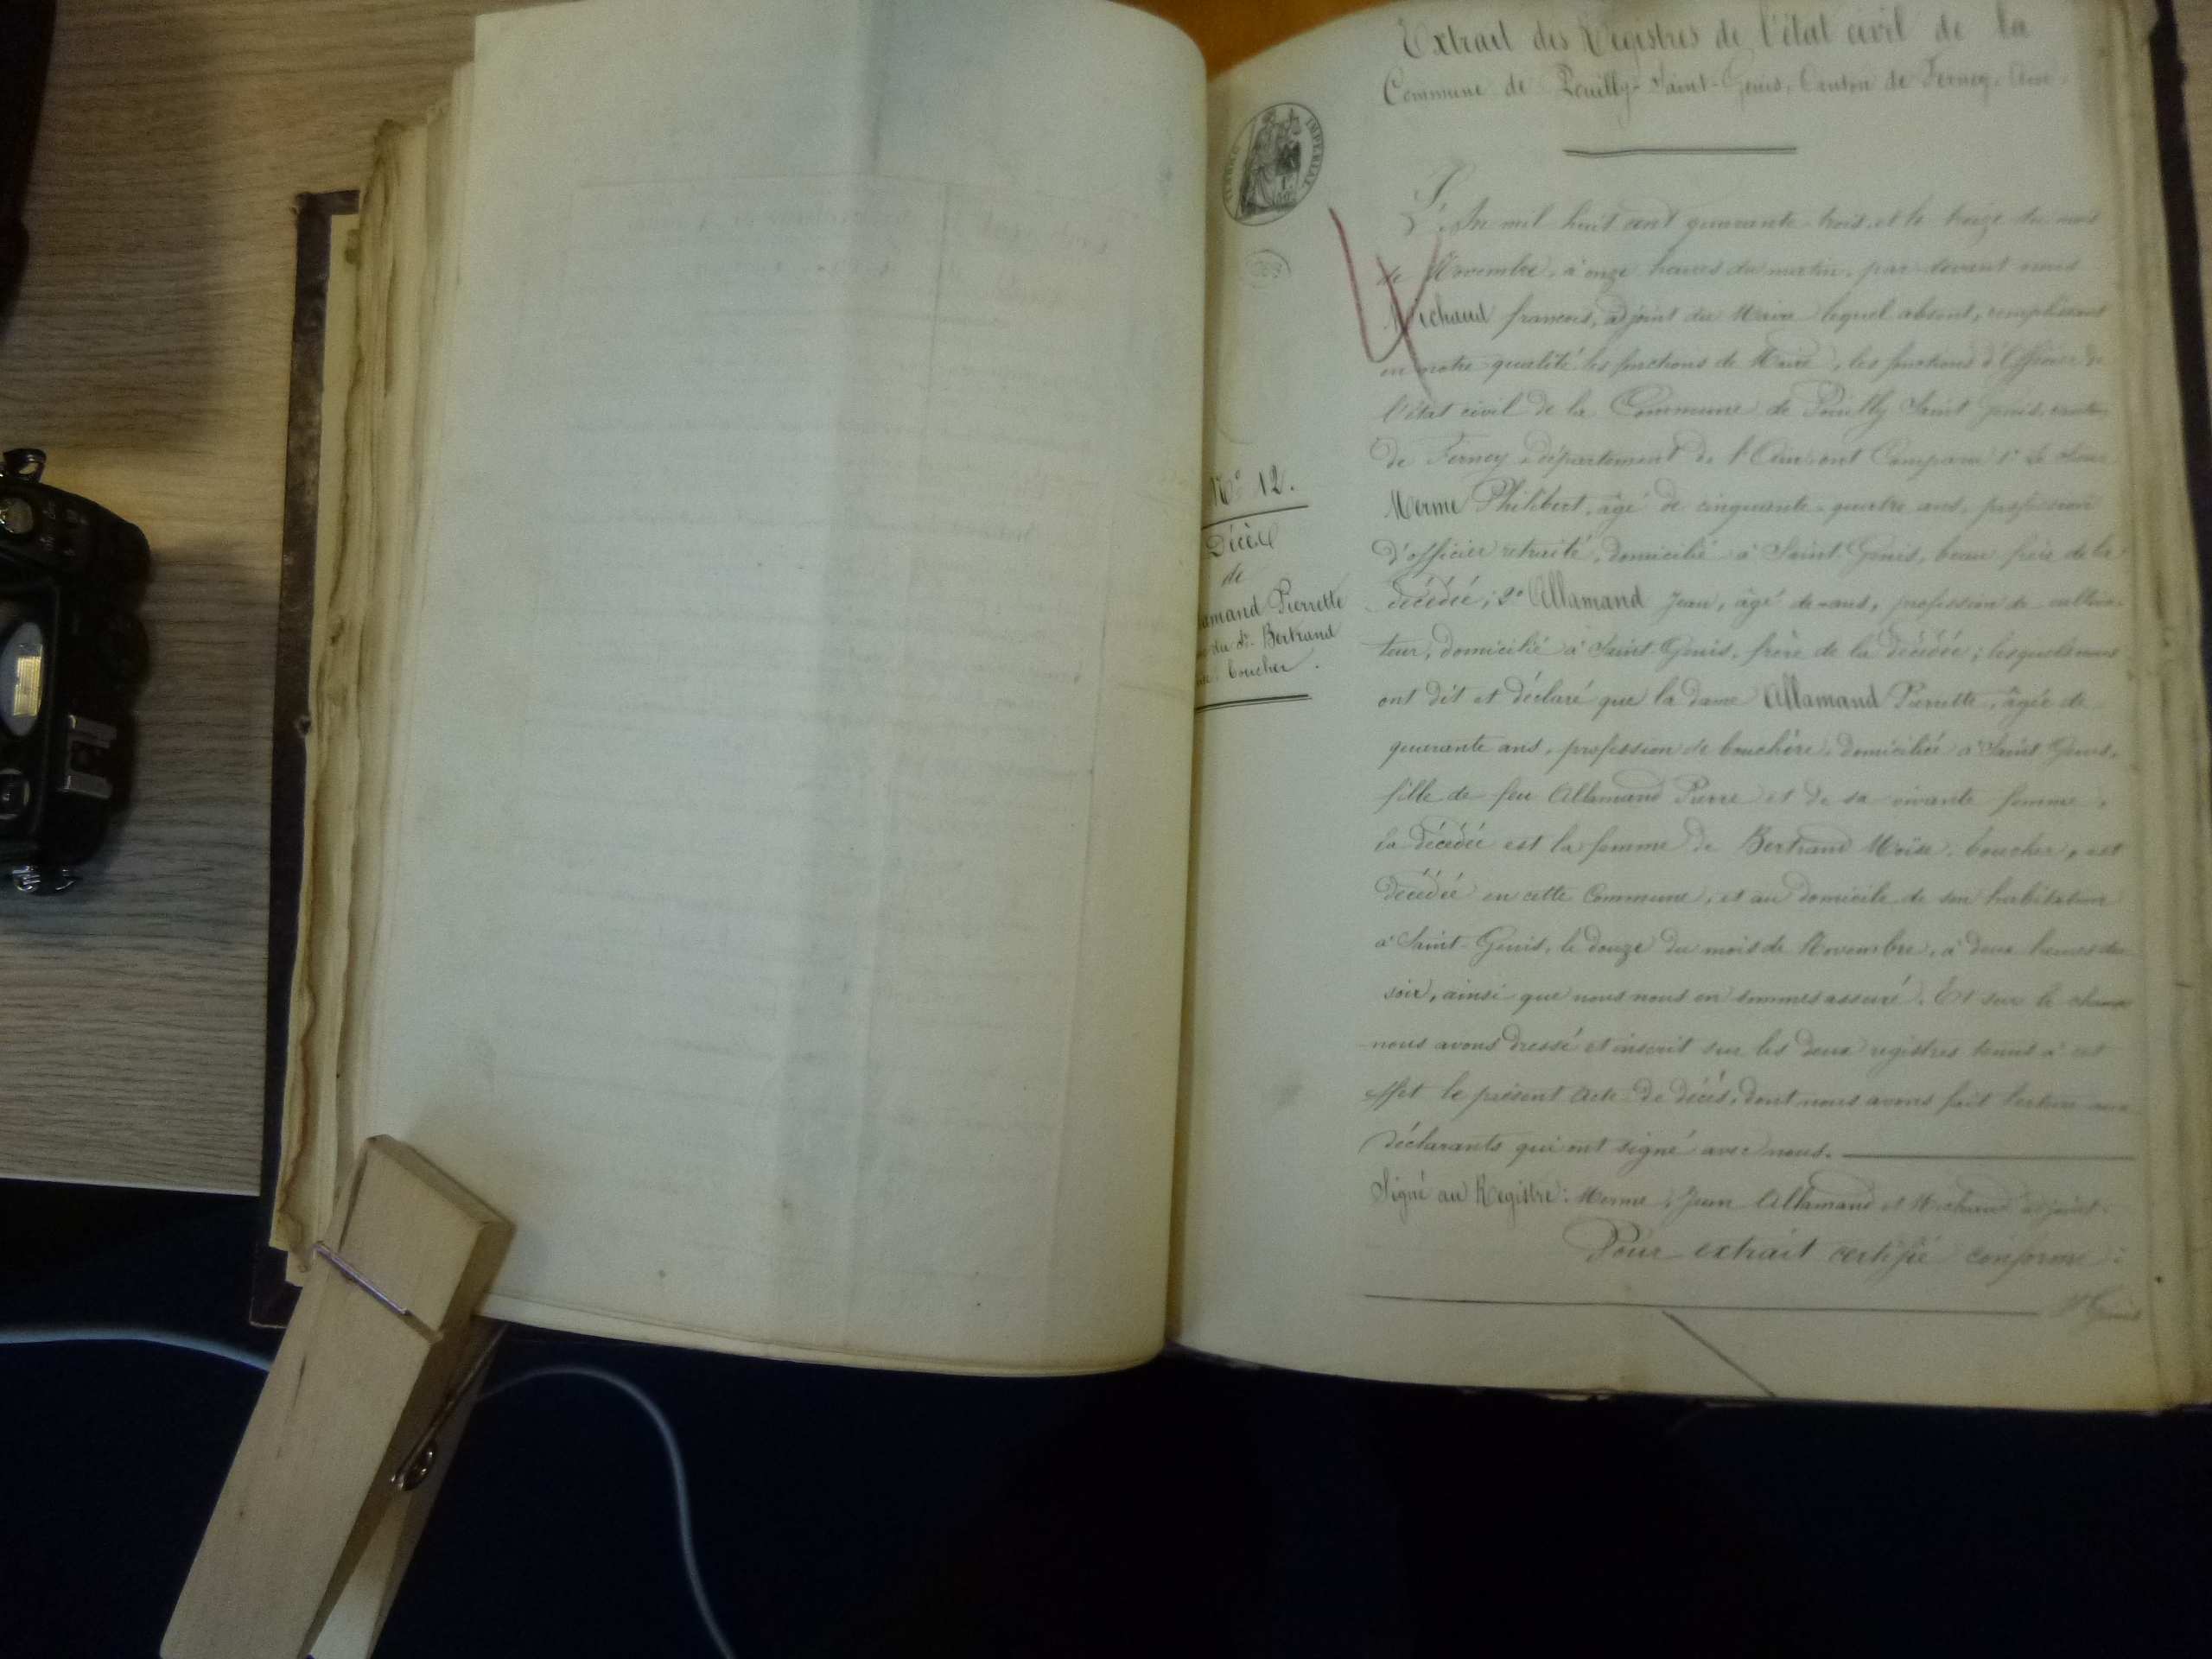 Extrait des Registres de l'état civil de la
Commune de Pouilly-Saint-Genis, Canton de Ferney, Ain.
IMPERIAL
L'An mil huit cent quarante trois et le treize du mois
de Novembre, à onze heures du matin, par devant nous
Michaud françois, adjoint du Maire lequel absent, remplissant
en notre qualité les fonctions de Maire, les fonctions d'Officier de
l'état civil de la Commune de Pouilly Saint Genis, canton
de Ferney, département de l'Ain ont Comparu 1° Le Sieur
Merme Philibert, âgé de cinquante-quatre ans, profession
d'officier retraité, domicilié à Saint Genis, beau frère de la
décédée; 2° Allamand Jean, âgé de - ans, profession de cultiva-
teur, domicilié à Saint Genis, frère de la décédée; lesquels nous
ont dit et déclaré que la dame Allamand Pierrette, âgée de
quarante ans, profession de bouchère, domiciliée à Saint Genis,
fille de feu Allamand Pierre et de sa vivante femme,
la décédée est la femme de Bertrand Moïse, boucher, est
décédée en cette Commune, et au domicile de son habitation
à Saint-Genis, le douze du mois de Novembre, à deux heures du
soir, ainsi que nous nous en sommes assuré. Et sur le champ
nous avons dressé et inscrit sur les deux registres tenus à cet
effet le présent Acte de décès, dont nous avons fait lecture aux
déclarants qui ont signé avec nous.
Signé au Registre: Merme, Jean Allamand et Michaud adjoint.
Pour extrait certifié conforme:
St Genis
N° 12.
Décès
de
amand Pierrette
du Sr. Bertrand
boucher.